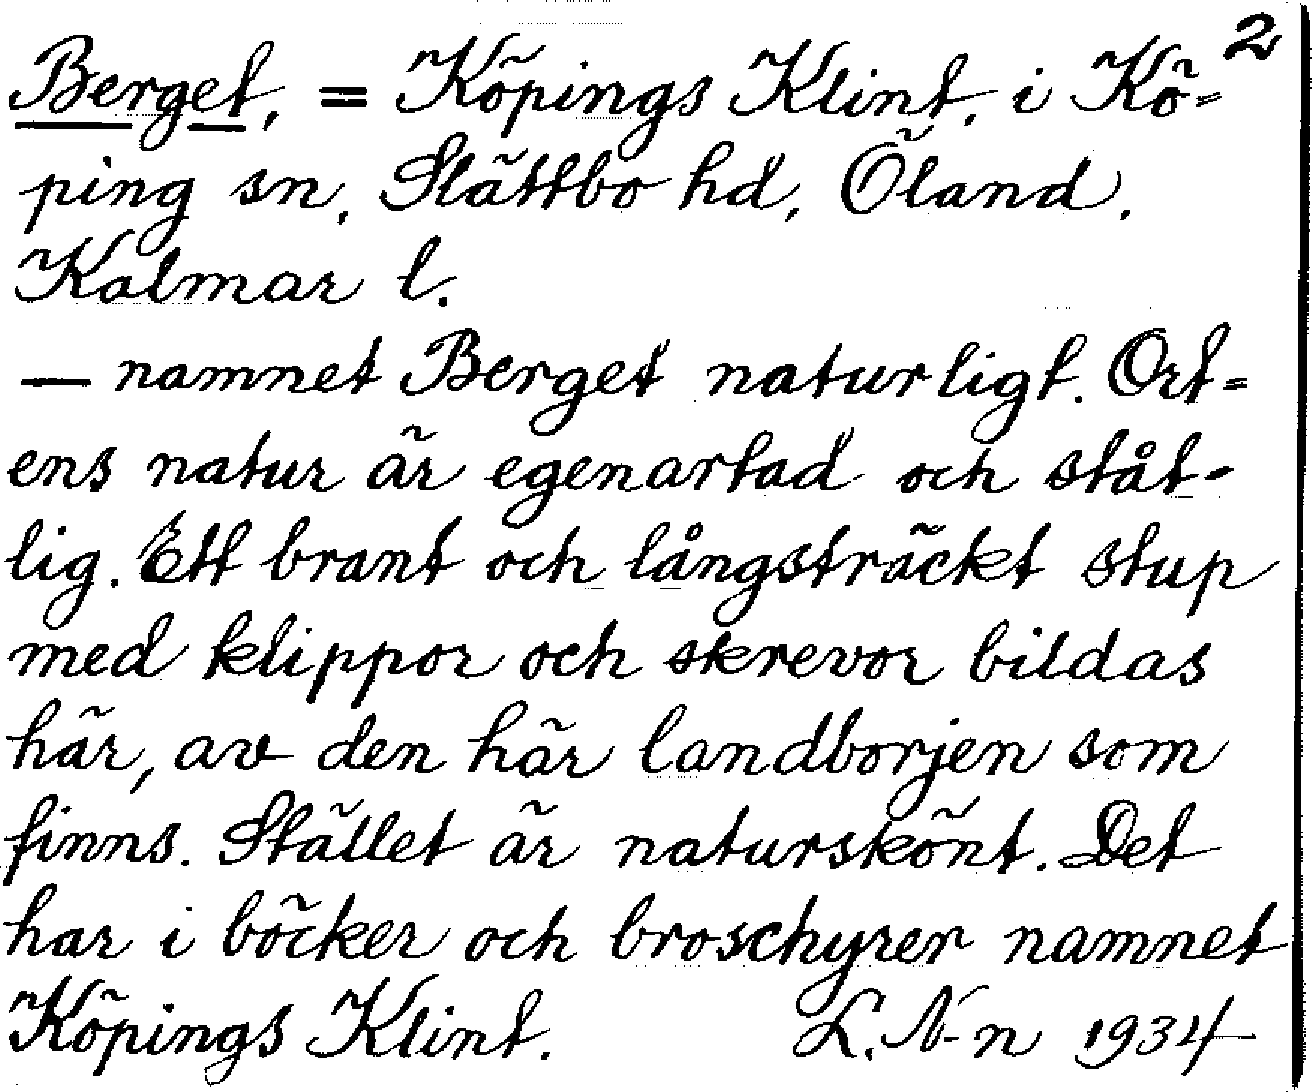 2
Berget, = Köpings Klint, i Kö=
ping sn, Slättbo hd, Öland,
Kalmar l.
— namnet Berget naturligt. Ort=
ens natur är egenartad och ståt-
lig. Ett brant och långsträckt stup
med klippor och skrevor bildas
här, av den här landborjen som
finns. Stället är naturskönt. Det
har i böcker och broschyrer namnet
Köpings Klint. L. N-n 1934